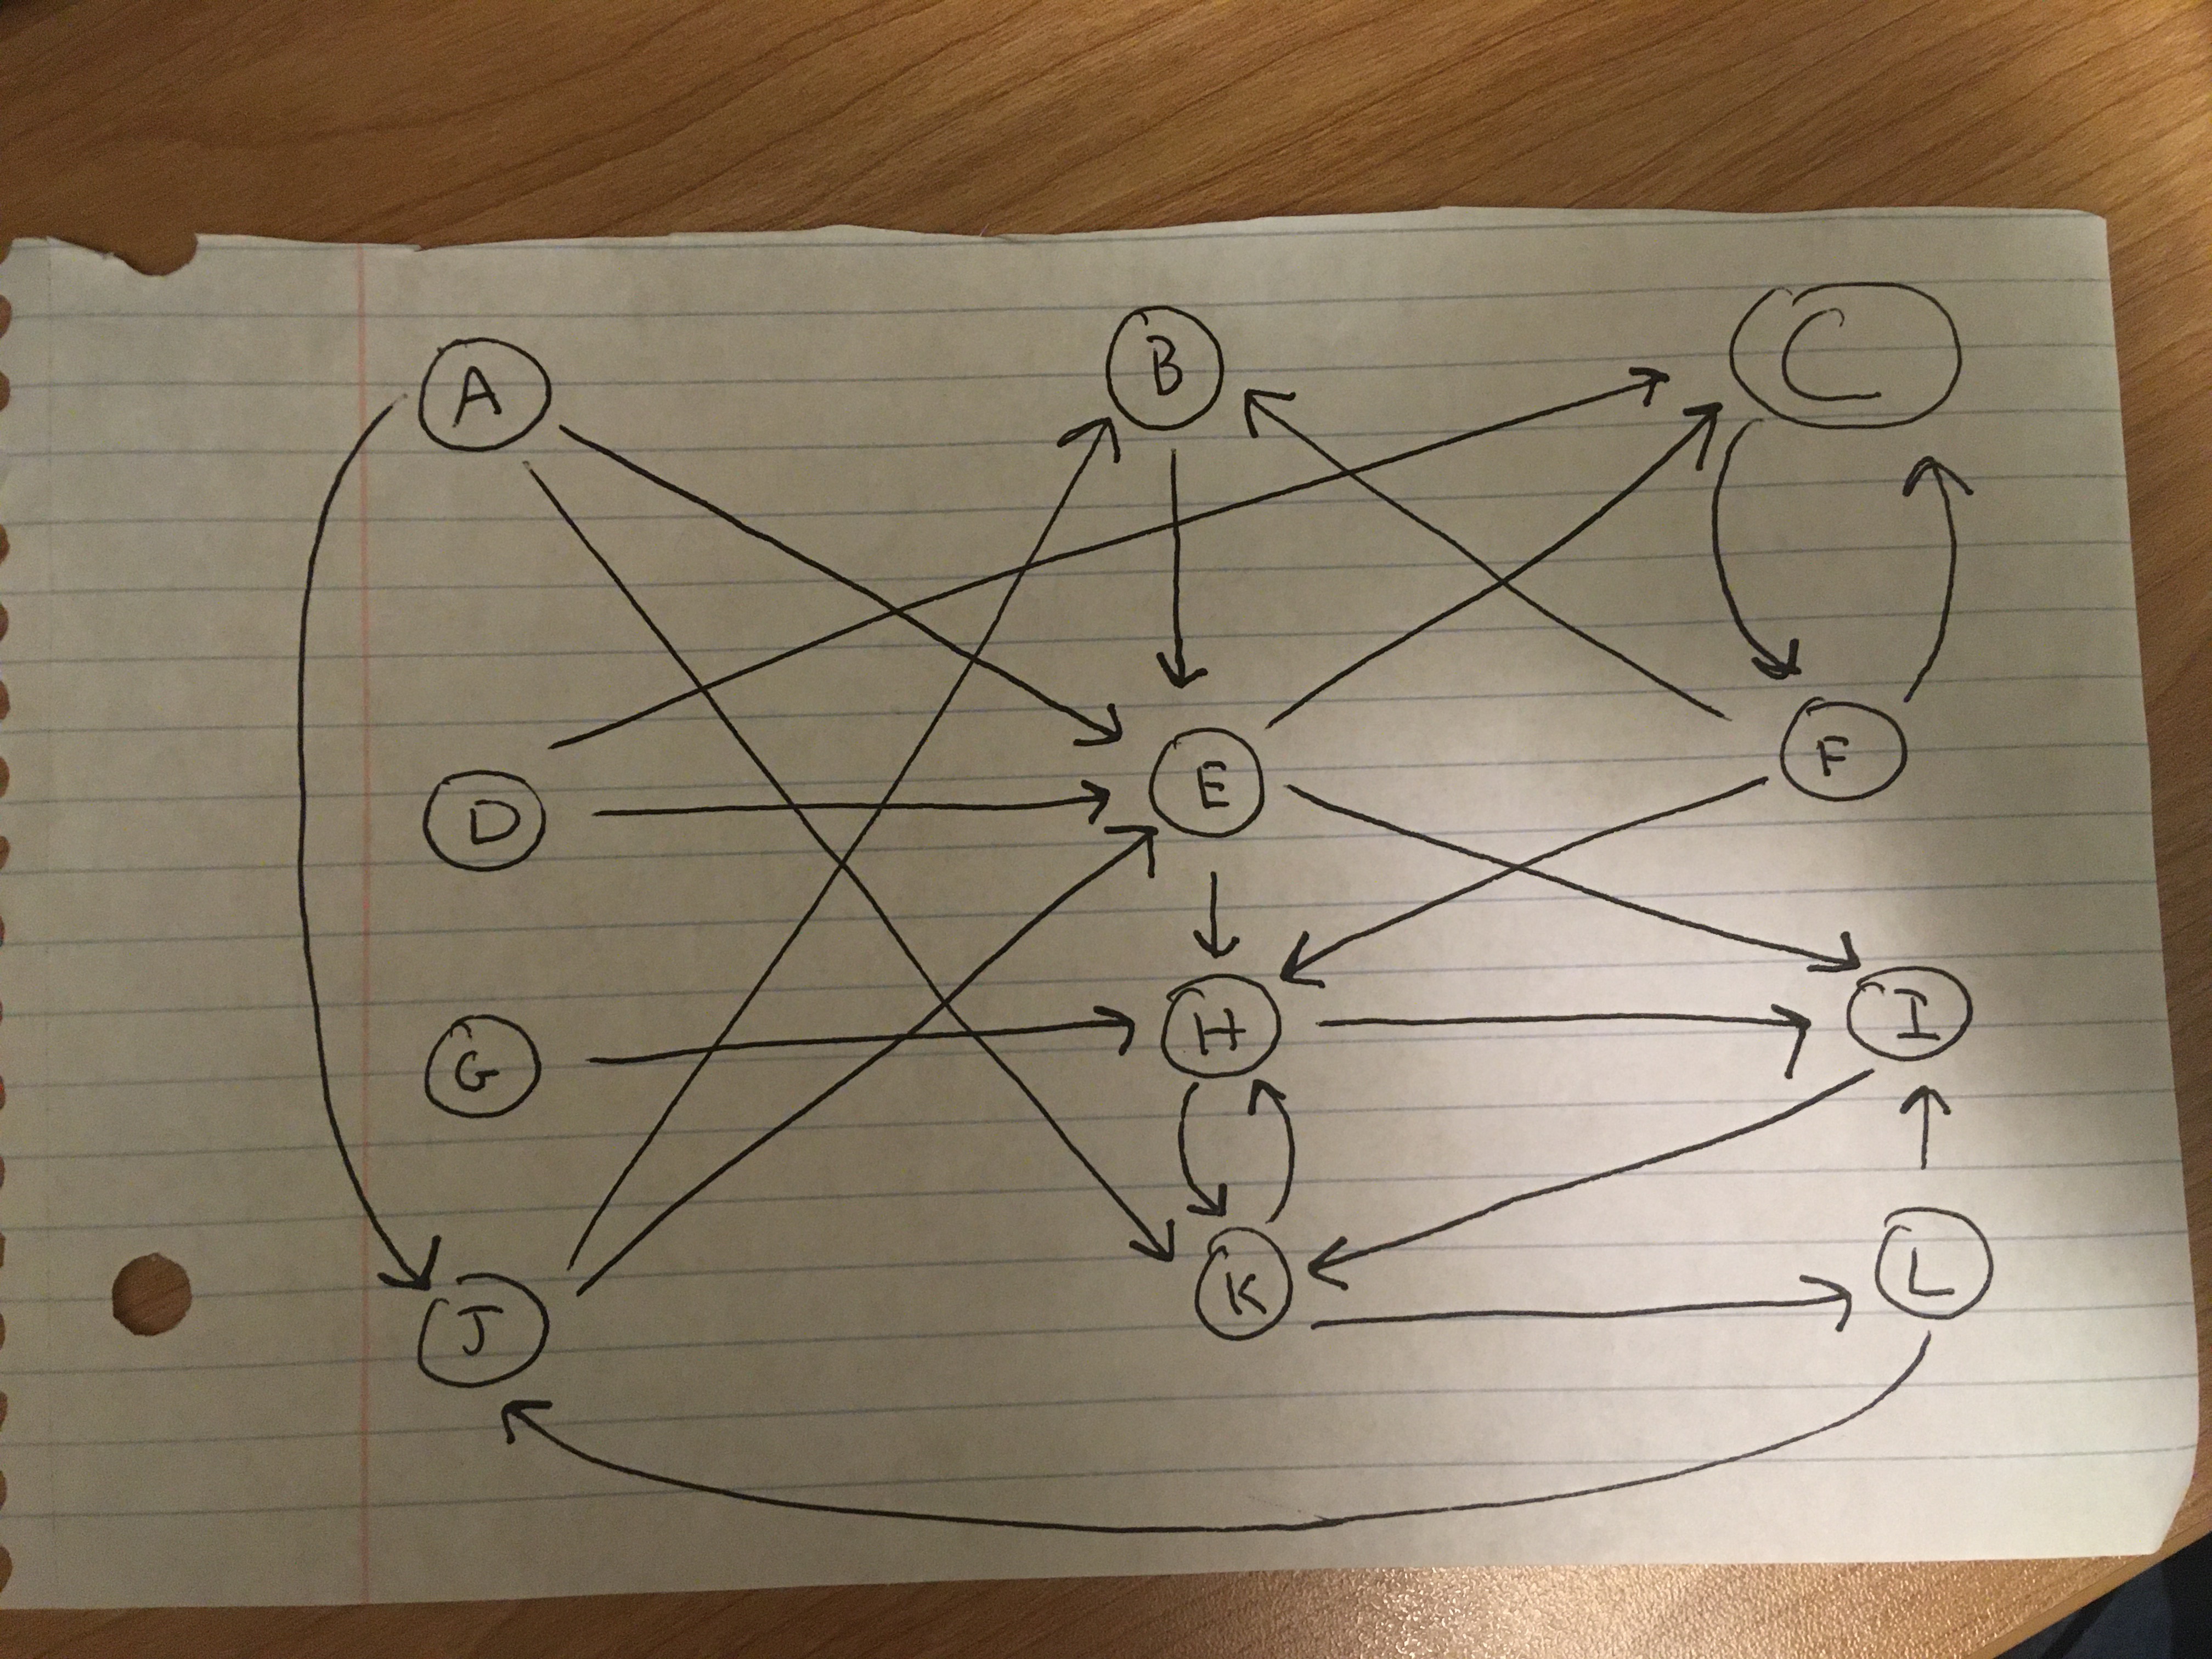 A B C
D E F
G H I
J K L